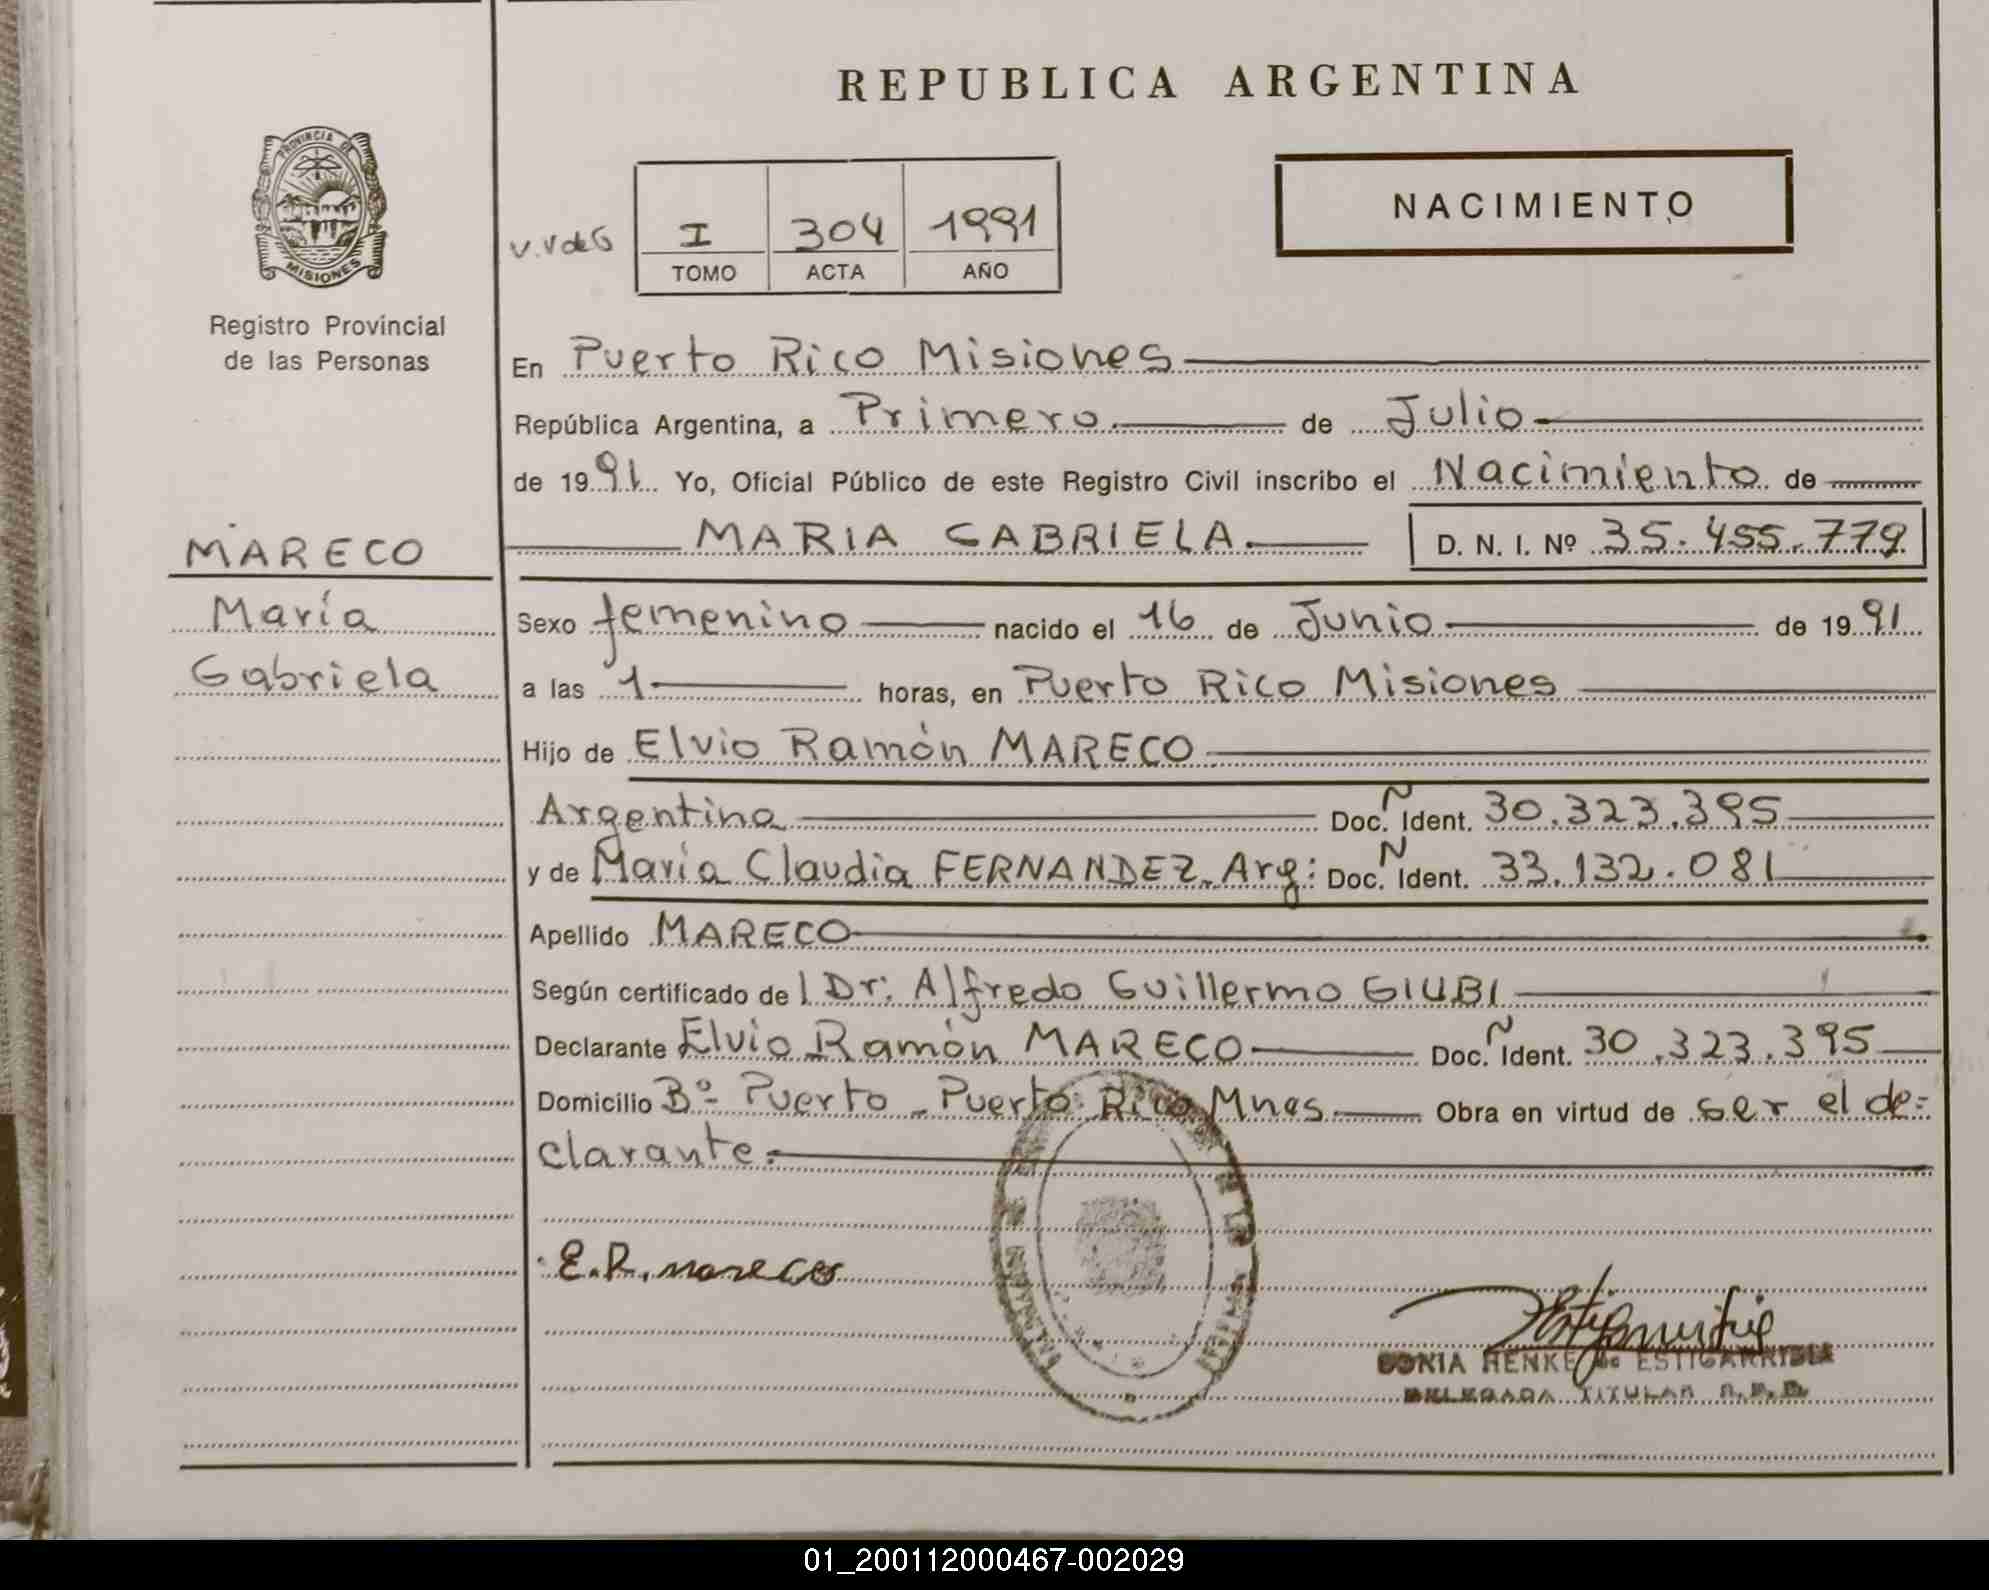 REPUBLICA ARGENTINA
PROVINCIA DE
MISIONES
Registro Provincial
de las Personas
V.V de G
I 304 1991
TOMO ACTA AÑO
NACIMIENTO
En Puerto Rico Misiones
República Argentina, a Primero de Julio
de 1991 Yo, Oficial Público de este Registro Civil inscribo el Nacimiento de
MARECO
MARIA GABRIELA. D. N. I. Nº 35.455.779
María
Gabriela
Sexo femenino nacido el 16 de Junio de 1991
a las 1 horas, en Puerto Rico Misiones
Hijo de Elvio Ramón MARECO
Argentina Doc. Ñ Ident. 30.323.395
y de María Claudia FERNANDEZ. Arg: Doc. N Ident. 33.132.081
Apellido MARECO
Según certificado del Dr. Alfredo Guillermo GIUBI
Declarante Elvio Ramón MARECO Doc. Ñ Ident. 30.323.395
Domicilio Bº Puerto - Puerto Rico Mnes. Obra en virtud de ser el de=
clarante.
E.R. mareco
SONIA HENKE de ESTIGARRIBIA
DELEGADA TITULAR R.P.P.
01_200112000467-002029